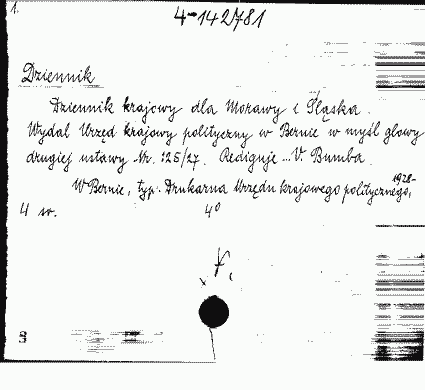 1.
4-142781
Dziennik
Dziennik krajowy dla Morawy i Śląska.
Wydal Urzęd krajowy polityczny w Bernie w myśl głowy
drugiej ustawy Nr. 125/27. Rediguje ... V. Bumba.
1928-
W Bernie, typ. Drukarna Urzędu krajowego politycznego,
4 sv. 4°